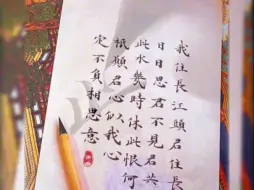 我住長江頭君住長
日日思君不見君共
此水幾時休此恨何
祇願君心似我心
定不負相思意